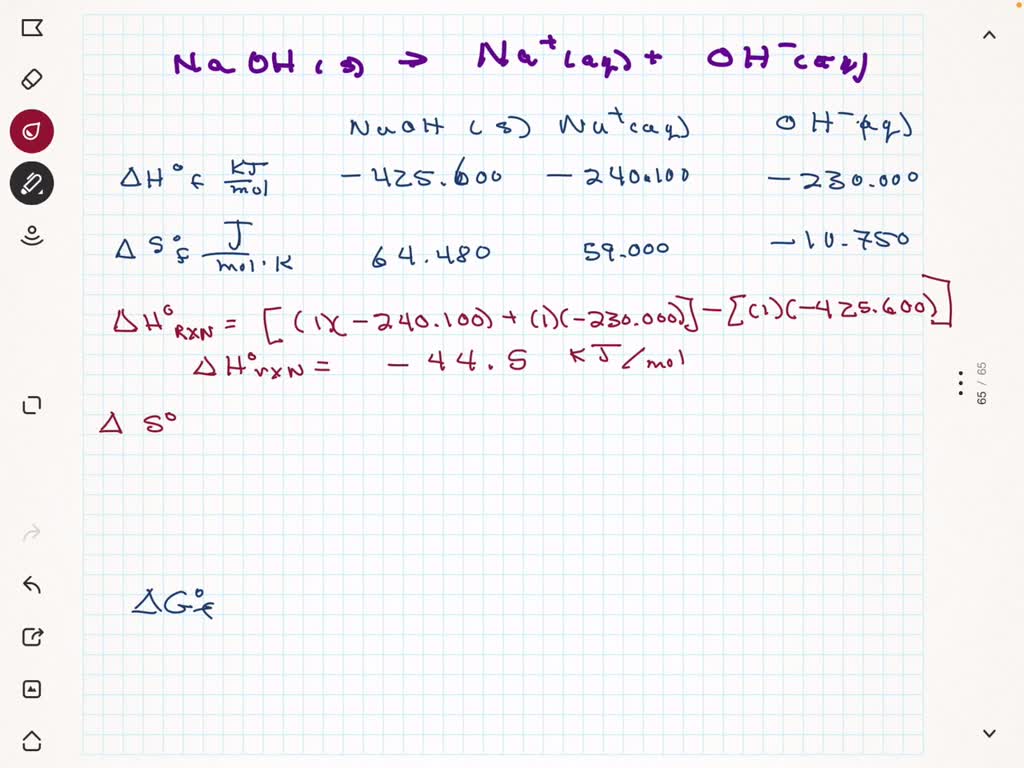 NaOH(s) → Na⁺(aq) + OH⁻(aq)
NaOH (s) Na⁺(aq) OH⁻(aq)
ΔH°f KJ/mol −425.600 −240.100 −230.000
ΔS°f J/mol·K 64.480 59.000 −10.750
ΔH°RXN = [(1)(−240.100) + (1)(−230.000)] − [(1)(−425.600)]
ΔH°rXN = −44.5 KJ/mol
ΔS°
ΔG°f
65 / 65